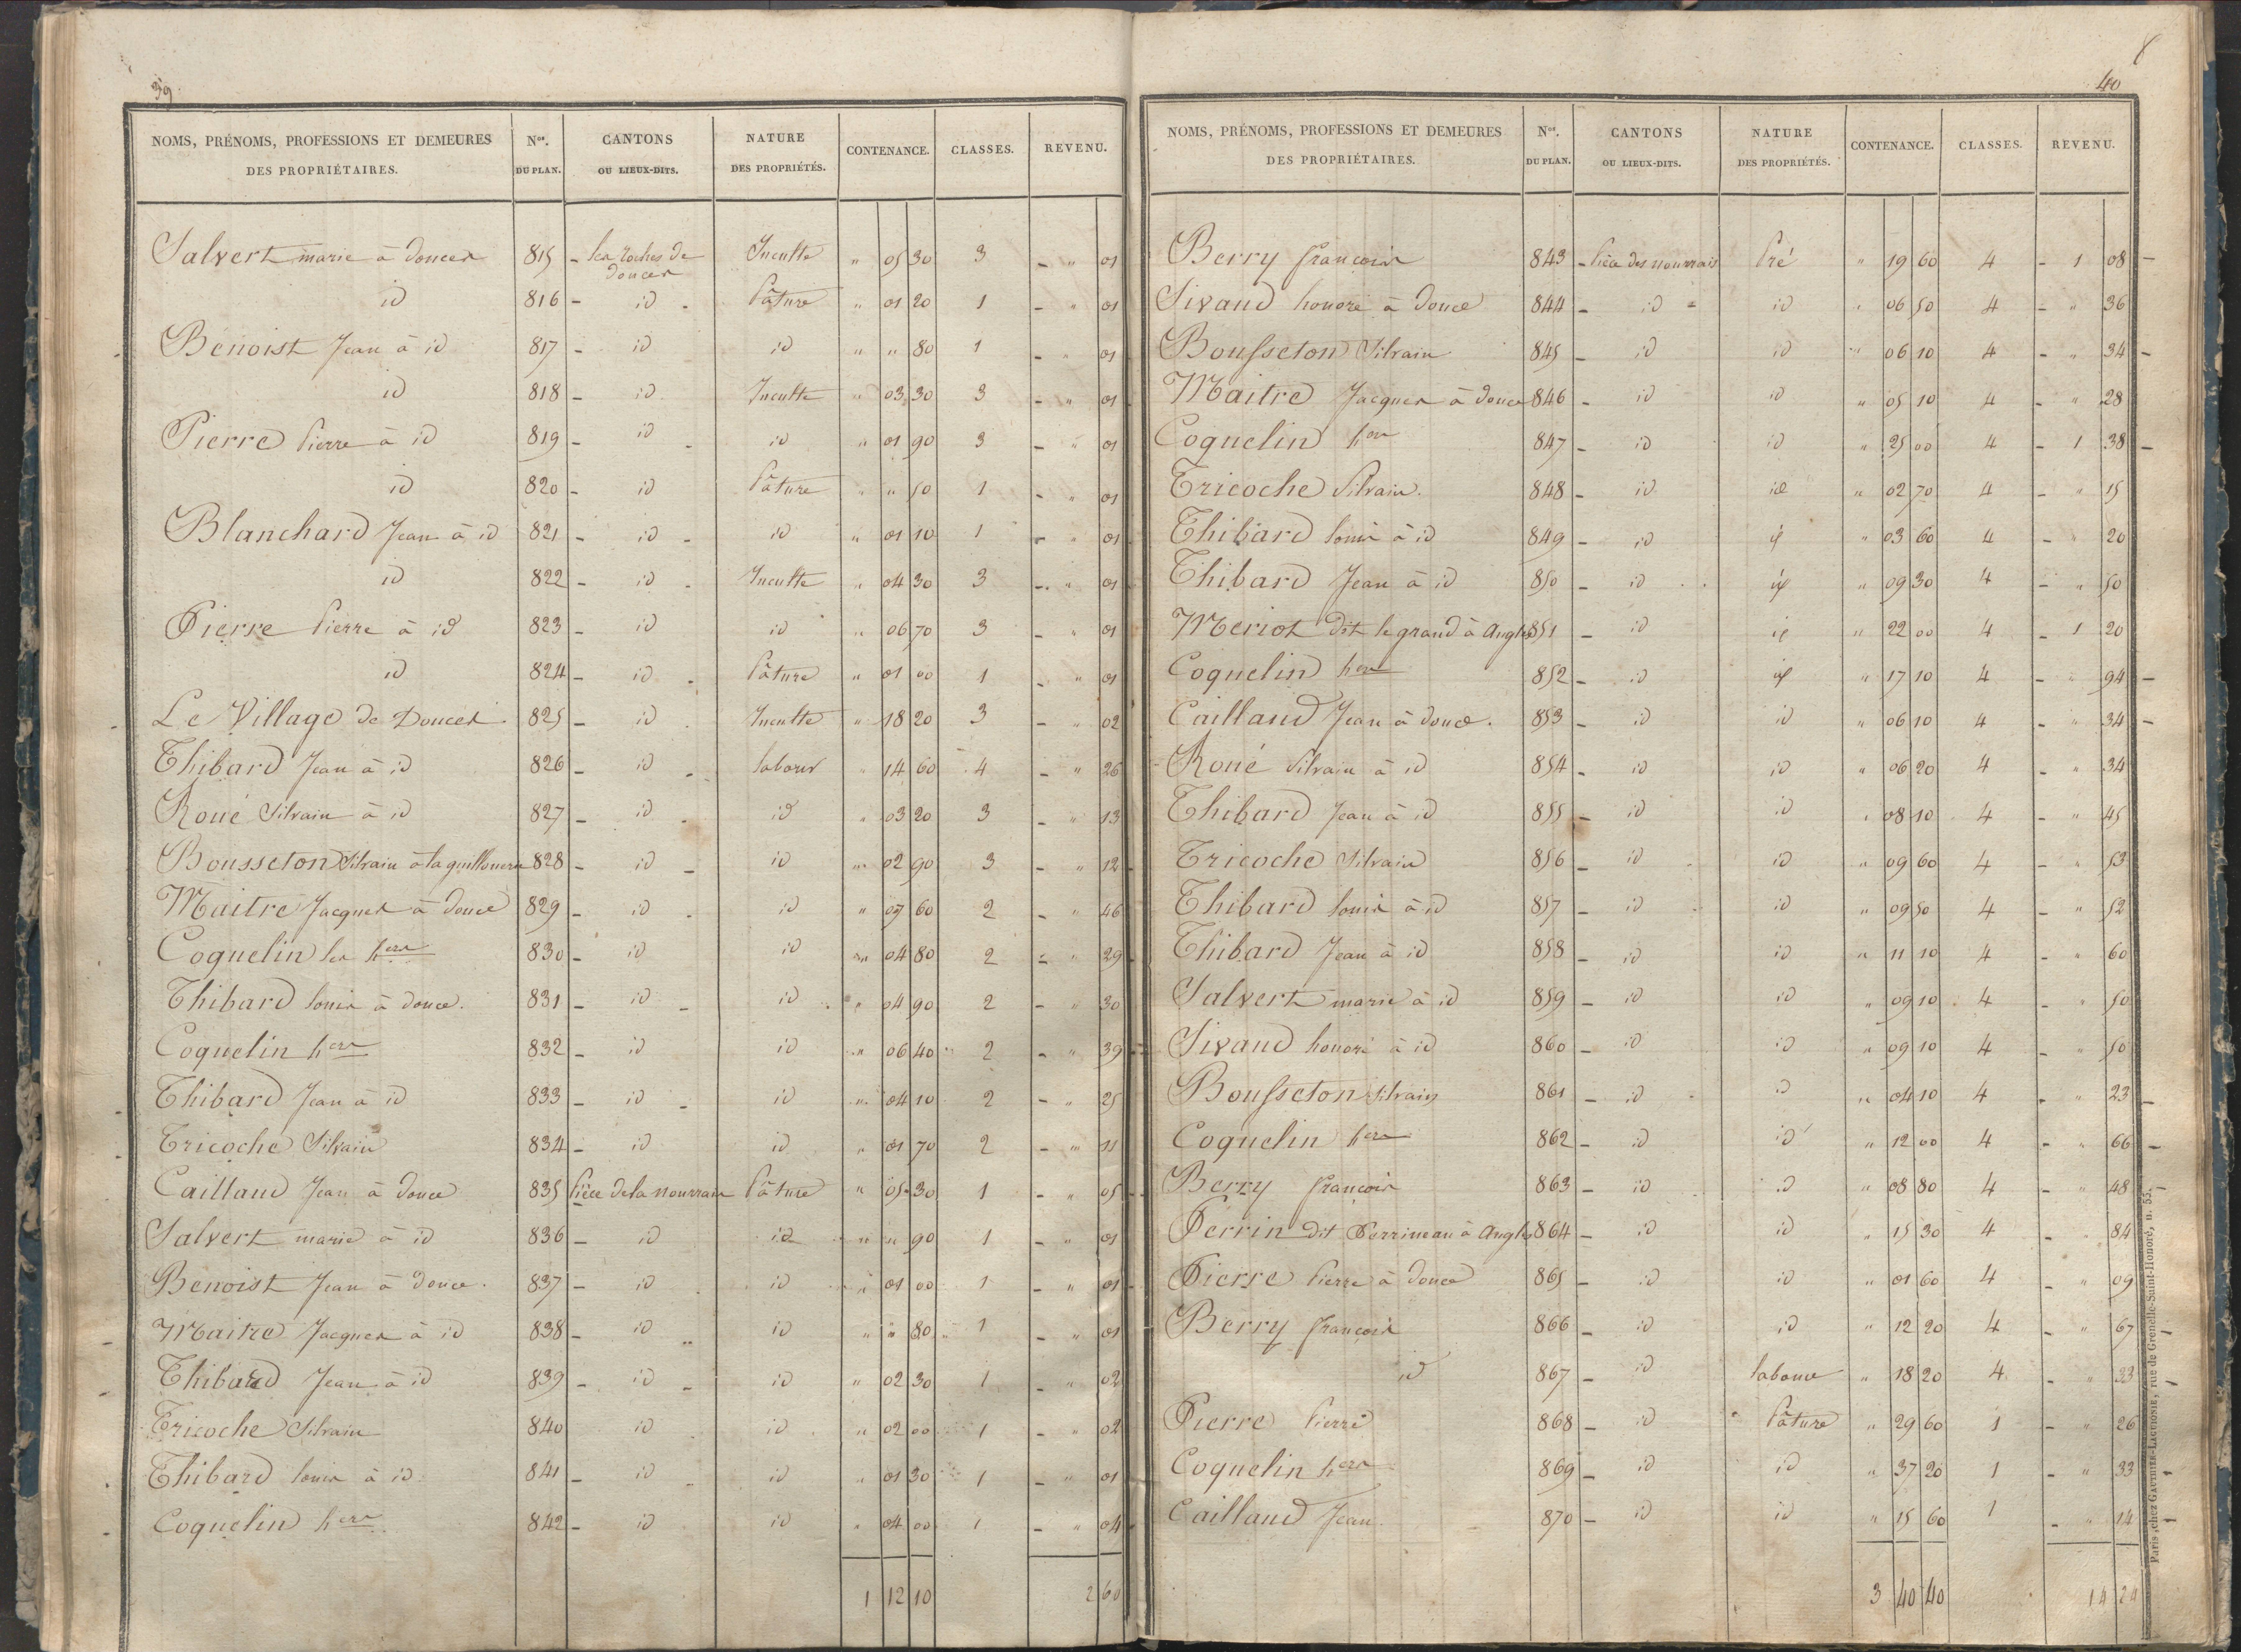 39
NOMS, PRÉNOMS, PROFESSIONS ET DEMEURES DES PROPRIÉTAIRES. Nos. DU PLAN. CANTONS OU LIEUX-DITS. NATURE DES PROPRIÉTÉS. CONTENANCE. CLASSES. REVENU.
Salvert marie à douces 815 - les roches de douces Inculte " 05 30 3 - " 01
id 816 - id - Pâture " 01 20 1 - " 01
Benoist Jean à id 817 - id id " " 80 1 - " 01
id 818 - id Inculte " 03 30 3 - " 01
Pierre Pierre à id 819 - id - id " 01 90 3 - " 01
id 820 - id Pâture " " 50 1 - " 01
Blanchard Jean à id 821 - id - id " 01 10 1 - " 01
id 822 - id - Inculte " 04 30 3 - " 01
Pierre Pierre à id 823 - id id " 06 70 3 - " 01
id 824 - id - Pâture " 01 00 1 - " 01
Le Village de Douces 825 - id - Inculte " 18 20 3 - " 02
Thibard Jean à id 826 - id - labour " 14 60 4 - " 26
Roué Silvain à id 827 - id - id " 03 20 3 - " 13
Bousseton Silvain à la 828 - id - id " 02 90 3 - " 12
Maitre Jacques à douce 829 - id - id " 07 60 2 - " 46
Coquelin les hers 830 - id id " 04 80 2 - " 29
Thibard louis à douce. 831 - id - id " 04 90 2 - " 30
Coquelin hers 832 - id id " 06 40 2 - " 39
Thibard Jean à id 833 - id - id " 04 10 2 - " 25
Tricoche Silvain 834 - id id " 01 70 2 - " 11
Caillaud Jean à douce 835 Pièce de la nourrain Pâture " 05 30 1 - " 05
Salvert marie à id 836 - id id " " 90 1 - " 01
Benoist Jean à douce. 837 - id id " 01 00 1 - " 01
Maitre Jacques à id 838 - id id " " 80 1 - " 01
Thibard Jean à id 839 - id - id " 02 30 1 - " 02
Tricoche Silvain 840 id id " 02 00 1 - " 02
Thibard louis à id 841 - id - id " 01 30 1 - " 01
Coquelin hers 842 - id id " 04 00 1 - " 04
1 12 10 2 60
40
NOMS, PRÉNOMS, PROFESSIONS ET DEMEURES DES PROPRIÉTAIRES. Nos. DU PLAN. CANTONS OU LIEUX-DITS. NATURE DES PROPRIÉTÉS. CONTENANCE. CLASSES. REVENU.
Berry françois 843 - Pièce des nourrais Pré " 19 60 4 - 1 08
Sivaud honoré à douce 844 - id - id " 06 50 4 - " 36
Bousseton Silvain 845 - id id " 06 10 4 - " 34
Maitre Jacques à douce 846 - id id " 05 10 4 - " 28
Coquelin hers 847 - id id " 25 00 4 - 1 38
Tricoche Silvain. 848 - id id " 02 70 4 - " 15
Thibard louis à id 849 - id id " 03 60 4 - " 20
Thibard Jean à id 850 - id id " 09 30 4 - " 50
Meriot dit le grand à Angles 851 - id id " 22 00 4 - 1 20
Coquelin hers 852 - id id " 17 10 4 - " 94
Caillaud Jean à douce. 853 - id id " 06 10 4 - " 34
Roué Silvain à id 854 - id id " 06 20 4 - " 34
Thibard Jean à id 855 - id id " 08 10 4 - " 45
Tricoche Silvain 856 - id id " 09 60 4 - " 53
Thibard louis à id 857 - id id " 09 50 4 - " 52
Thibard Jean à id 858 - id id " 11 10 4 - " 60
Salvert marie à id 859 - id id " 09 10 4 - " 50
Sivaud honoré à id 860 - id id " 09 10 4 - " 50
Bousseton Silvain 861 - id id " 04 10 4 - " 23
Coquelin hers 862 - id id " 12 00 4 - " 66
Berry françois 863 - id id " 08 80 4 - " 48
Perrin dit Perrineau à Angles 864 - id id " 15 30 4 - " 84
Pierre Pierre à douce 865 - id id " 01 60 4 - " 09
Berry françois 866 - id id " 12 20 4 - " 67
id 867 - id labour " 18 20 4 - " 33
Pierre Pierre 868 - id Pâture " 29 60 1 - " 26
Coquelin hers 869 - id id " 37 20 1 - " 33
Caillaud Jean. 870 - id id " 15 60 1 - " 14
3 40 40 14 24
Paris, chez GAUTHIER-LAGUIONIE, rue de Grenelle-Saint-Honoré, n. 55.